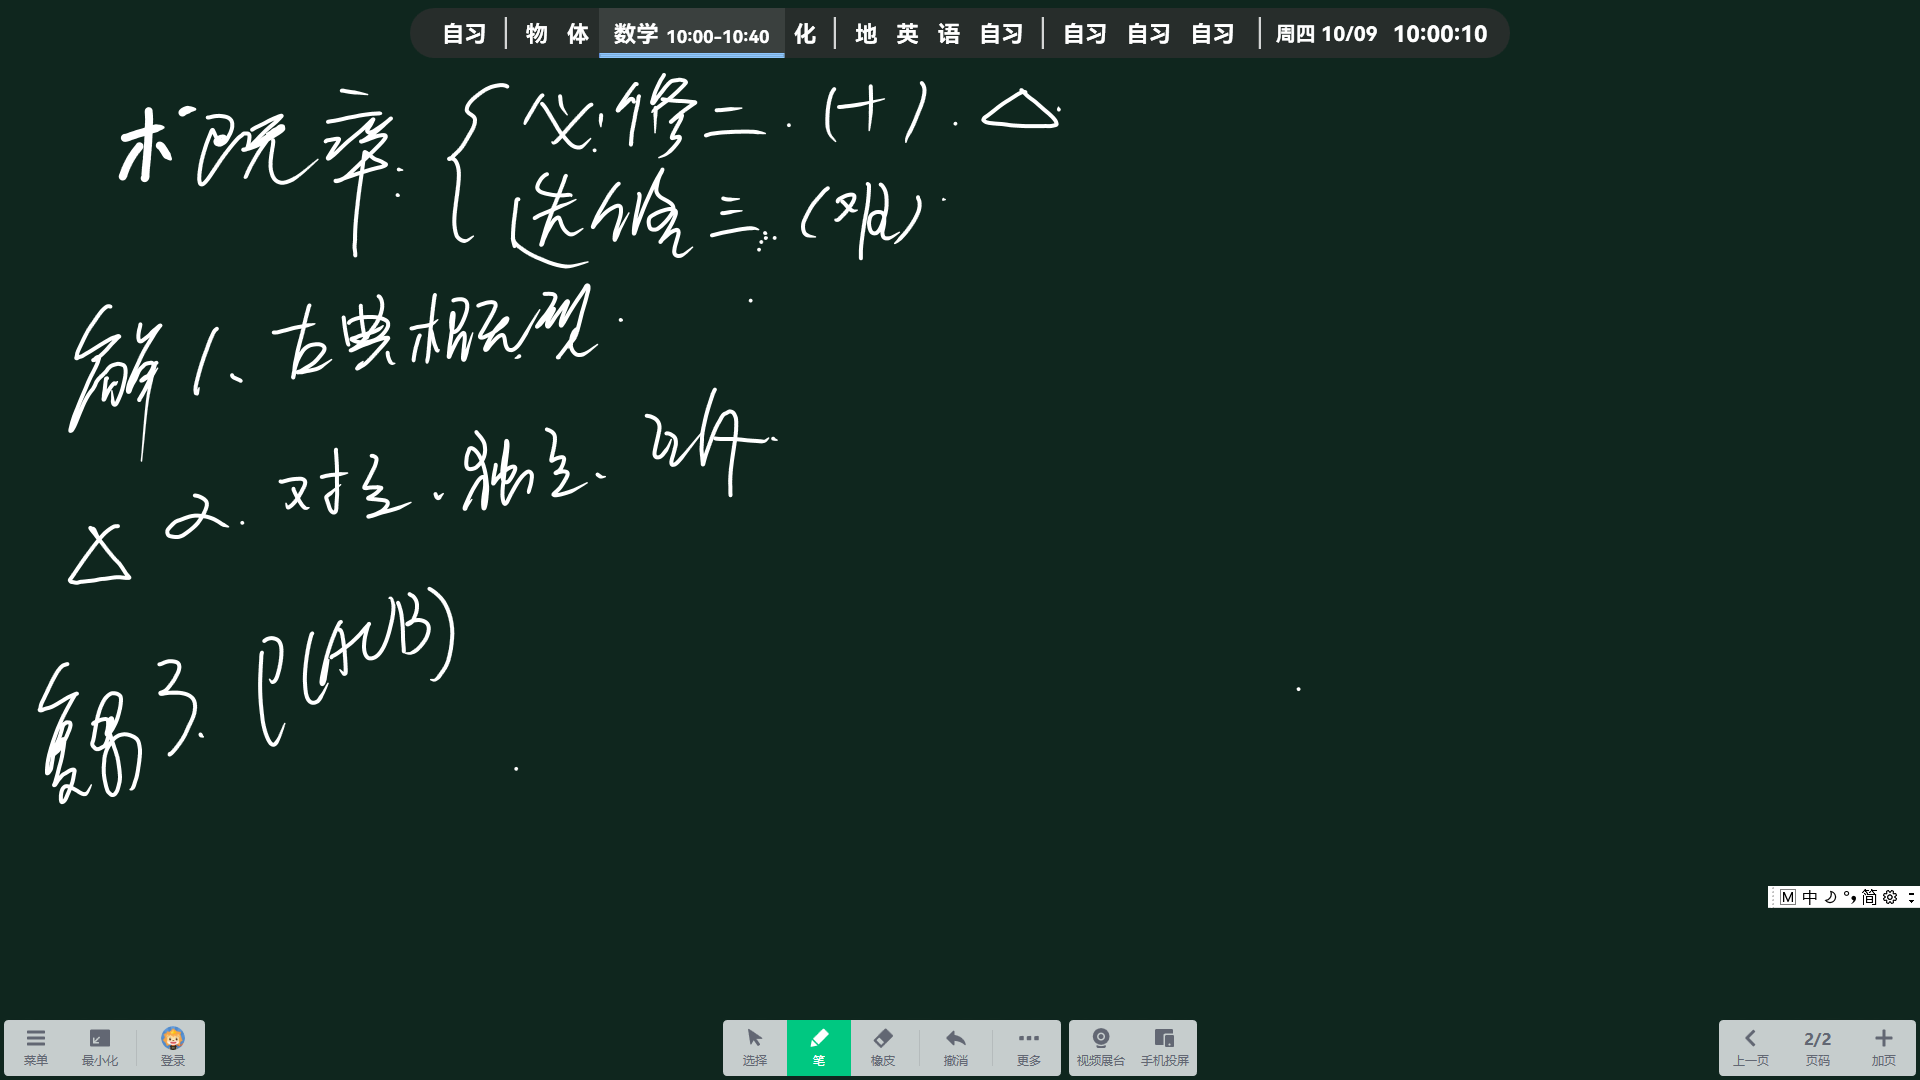 自习 物 体 数学 10:00-10:40 化 地 英 语 自习 自习 自习 自习 周四 10/09 10:00:10
概率: 必修二.(十).△
选修三.(难)
解 1、古典概型.
△ 2. 对立、独立、互斥.
复习 3. P(A∪B)
M 中 简
菜单 最小化 登录 选择 笔 橡皮 撤消 更多 视频展台 手机投屏 上一页 2/2 页码 加页